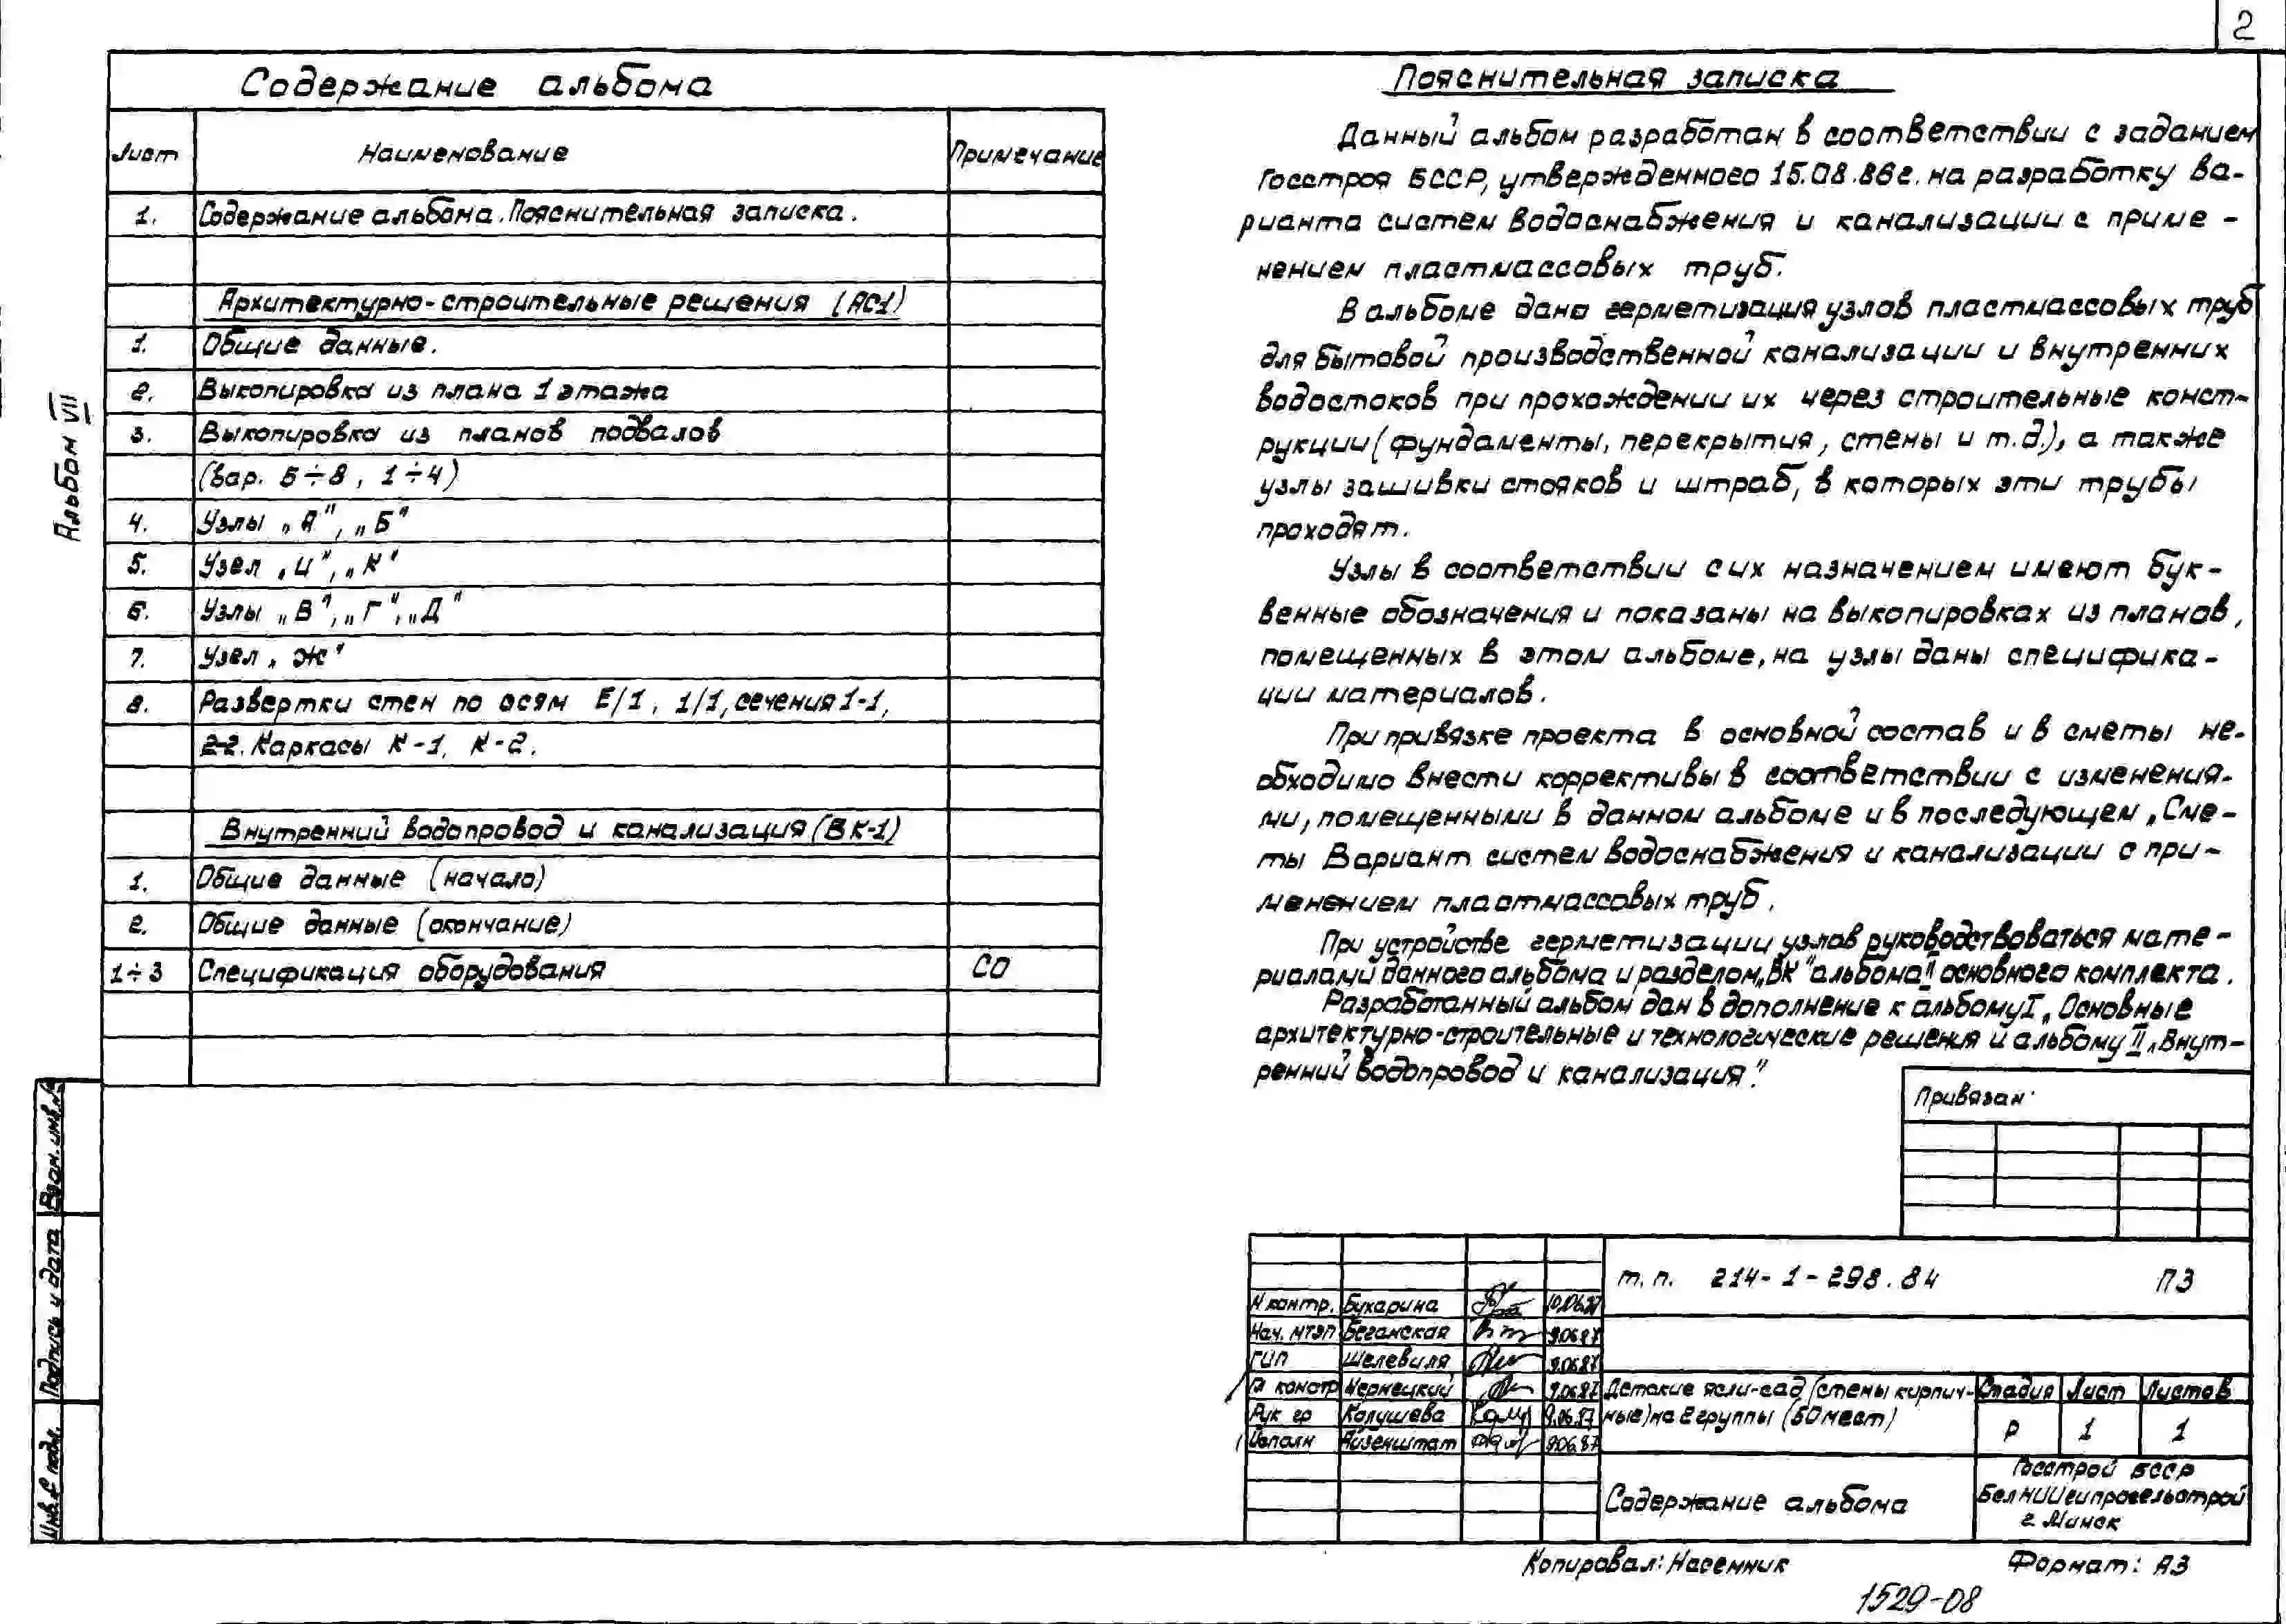 2
Альбом VII
Содержание альбома
Лист Наименование Примечание
1. Содержание альбома. Пояснительная записка.
Архитектурно-строительные решения (АС1)
1. Общие данные.
2. Выкопировка из плана 1 этажа
3. Выкопировка из планов подвалов
(вар. 5÷8, 1÷4)
4. Узлы „А", „Б"
5. Узел „И", „К"
6. Узлы „В", „Г", „Д"
7. Узел „Ж"
8. Развертки стен по осям Е/1, 1/1, сечения 1-1,
2-2. Каркасы К-1, К-2.
Внутренний водопровод и канализация (ВК-1)
1. Общие данные (начало)
2. Общие данные (окончание)
1÷3 Спецификация оборудования СО
Пояснительная записка
Данный альбом разработан в соответствии с заданием
Госстроя БССР, утвержденного 15.08.86г. на разработку ва-
рианта систем водоснабжения и канализации с приме-
нением пластмассовых труб.
В альбоме дана герметизация узлов пластмассовых труб
для бытовой производственной канализации и внутренних
водостоков при прохождении их через строительные конст-
рукции (фундаменты, перекрытия, стены и т.д.), а также
узлы зашивки стояков и штраб, в которых эти трубы
проходят.
Узлы в соответствии с их назначением имеют бук-
венные обозначения и показаны на выкопировках из планов,
помещенных в этом альбоме, на узлы даны специфика-
ции материалов.
При привязке проекта в основной состав и в сметы не-
обходимо внести коррективы в соответствии с изменения-
ми, помещенными в данном альбоме и в последующем „Сме-
ты Вариант систем водоснабжения и канализации с при-
менением пластмассовых труб.
При устройстве герметизации узлов руководствоваться мате-
риалами данного альбома и разделом „ВК" альбома II основного комплекта.
Разработанный альбом дан в дополнение к альбому I „Основные
архитектурно-строительные и технологические решения и альбому II „Внут-
ренний водопровод и канализация".
Привязан:
т.п. 214-1-298.84 ПЗ
Н контр. Бухарина 10.06.87
Нач. МТЭП Беганская 9.06.87
ГИП Шелевиля 9.06.87
Гл констр Чернецкий 9.06.87
Рук гр Колушева 9.06.87
Исполн Айзенштат 9.06.87
Детские ясли-сад (стены кирпич-
ные) на 2 группы (50 мест)
Стадия Лист Листов
Р 1 1
Содержание альбома
Госстрой БССР
БелНИИгипросельстрой
г. Минск
Взам. инв. №
Подпись и дата
Инв. № подл.
Копировал: Насенник Формат: А3
1529-08